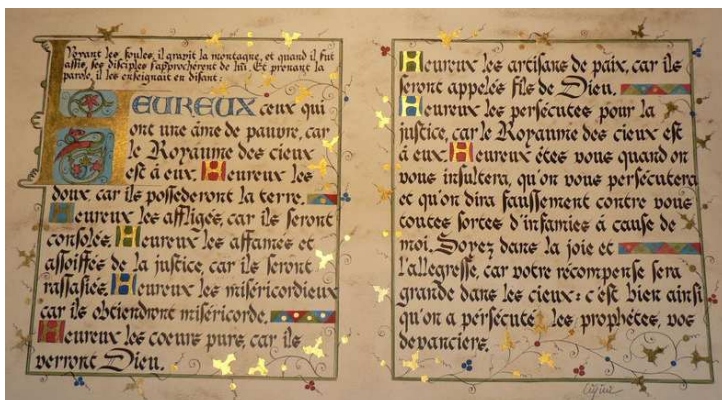 Voyant les foules, il gravit la montagne, et quand il fut
assis, ses disciples s'approchèrent de lui. Et prenant la
parole, il les enseignait en disant:
HEUREUX ceux qui
ont une âme de pauvre, car
le Royaume des cieux
est à eux. Heureux les
doux, car ils possèderont la terre.
Heureux les affligés, car ils seront
consolés. Heureux les affamés et
assoiffés de la justice, car ils seront
rassasiés. Heureux les miséricordieux
car ils obtiendront miséricorde.
Heureux les coeurs purs, car ils
verront Dieu.
Heureux les artisans de paix, car ils
seront appelés fils de Dieu.
Heureux les persécutés pour la
justice, car le Royaume des cieux est
à eux. Heureux êtes vous quand on
vous insultera, qu'on vous persécutera
et qu'on dira faussement contre vous
toutes sortes d'infamies à cause de
moi. Soyez dans la joie et
l'allegresse, car votre récompense sera
grande dans les cieux: c'est bien ainsi
qu'on a persécuté les prophètes, vos
devanciers.